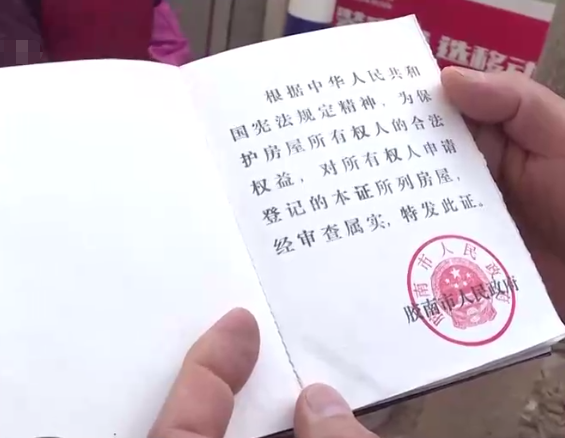 根据中华人民共和
国宪法规定精神，为保
护房屋所有权人的合法
权益，对所有权人申请
登记的本证所列房屋，
经审查属实，特发此证。
胶南市人民政府
南市人民政
选移动